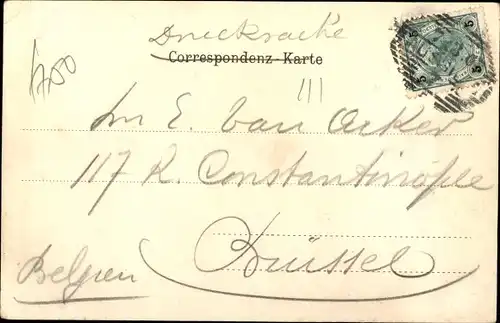 Drucksache
Correspondenz-Karte
1700
111
5 5
Im E. Van Acker
117 R. Constantinople
Brüssel
Belgien